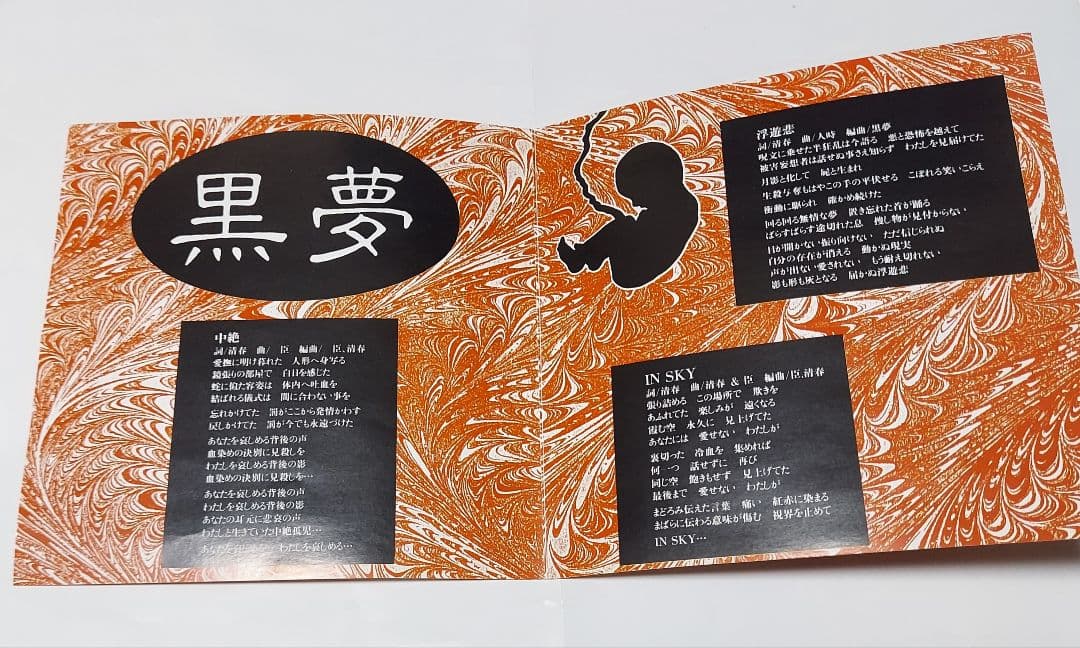 黒夢
中絶
詞/清春 曲/ 臣 編曲/ 臣、清春
愛撫に明け暮れた 人形へ身写る
鏡張りの部屋で 自日を感じた
蛇に似た容姿は 体内へ吐血を
結ばれる儀式は 間に合わない事を
忘れかけてた 罰がここから発情かわす
戻しかけてた 罰が今でも永遠づけた
あなたを哀しめる背後の声
血染めの決別に見殺しを
わたしを哀しめる背後の影
血染めの決別に見殺しを…
あなたを哀しめる背後の声
わたしを哀しめる背後の影
あなたの耳元に悲哀の声
わたしと生きていた中絶孤児…
あなたを哀しめる わたしを哀しめる…
浮遊悲
詞/清春 曲/人時 編曲/黒夢
呪文に乗せた半狂乱は今語る 悪と恐怖を越えて
被害妄想者は話せぬ事さえ知らず わたしを見届けてた
月影と化して 屍と生まれ
生殺与奪もはやこの手の平伏せる こぼれる笑いこらえ
衝動に駆られ 確かめ続けた
回る回る無情な夢 置き忘れた首が踊る
ばらすばらす途切れた息 捜し物が見付からない
目が開かない振り向けない ただ信じられぬ
自分の存在が消える 動かぬ現実
声が出ない愛されない もう耐え切れない
影も形も灰となる 届かぬ浮遊悲
IN SKY
詞/清春 曲/清春 & 臣 編曲/臣、清春
張り詰める この場所で 歎きを
あふれてた 楽しみが 遠くなる
霞む空 永久に 見上げてた
あなたには 愛せない わたしが
裏切った 冷血を 集めれば
何一つ 話せずに 再び
同じ空 飽きもせず 見上げてた
最後まで 愛せない わたしが
まどろみ伝えた言葉 痛い 紅赤に染まる
まばらに伝わる意味が傷む 視界を止めて
IN SKY…